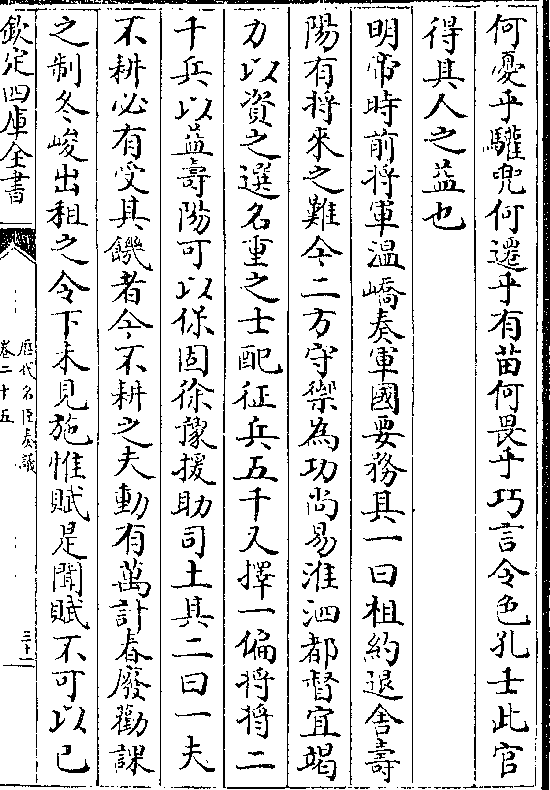 何憂乎驩兜何遷乎有苗何畏乎巧言令色孔壬此官
得其人之益也
明帝時前将軍溫嶠奏軍國要務其一曰祖約退舍壽
陽有将來之難今二方守禦為功尚易淮泗都督宜竭
力以資之選名重之士配征兵五千又擇一偏将将二
千兵以益壽陽可以保固徐豫援助司土其二曰一夫
不耕必有受其饑者今不耕之夫動有萬計春廢勸課
之制冬峻出租之令下未見施惟賦是聞賦不可以已
欽定四庫全書
歷代名臣奏議
卷二十五
三十二